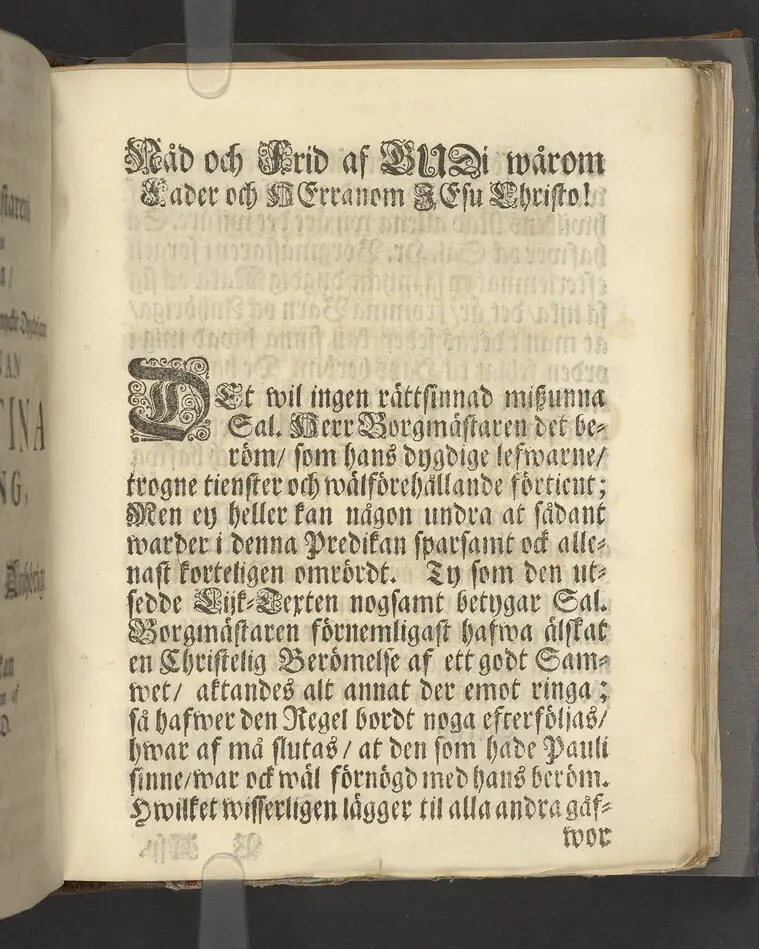 Nåd och Frid af GUDi wårom
Fader och HErranom JEsu Christo!
DEt wil ingen rättsinnad mißunna
Sal. Herr Borgmästaren det be-
röm/ som hans dygdige lefwarne/
trogne tienster och wälförehållande förtient;
Men ey heller kan någon undra at sådant
warder i denna Predikan sparsamt ock alle-
nast korteligen omrördt. Ty som den ut-
sedde Lijk-Texten nogsamt betygar Sal.
Borgmästaren förnemligast hafwa älskat
en Christelig Berömelse af ett godt Sam-
wet/ aktandes alt annat der emot ringa;
så hafwer den Regel bordt noga efterföljas/
hwar af må slutas/ at den som hade Pauli
sinne/war ock wäl förnögd med hans beröm.
Hwilket wisserligen lägger til alla andra gåf-
wor
INA
NG,